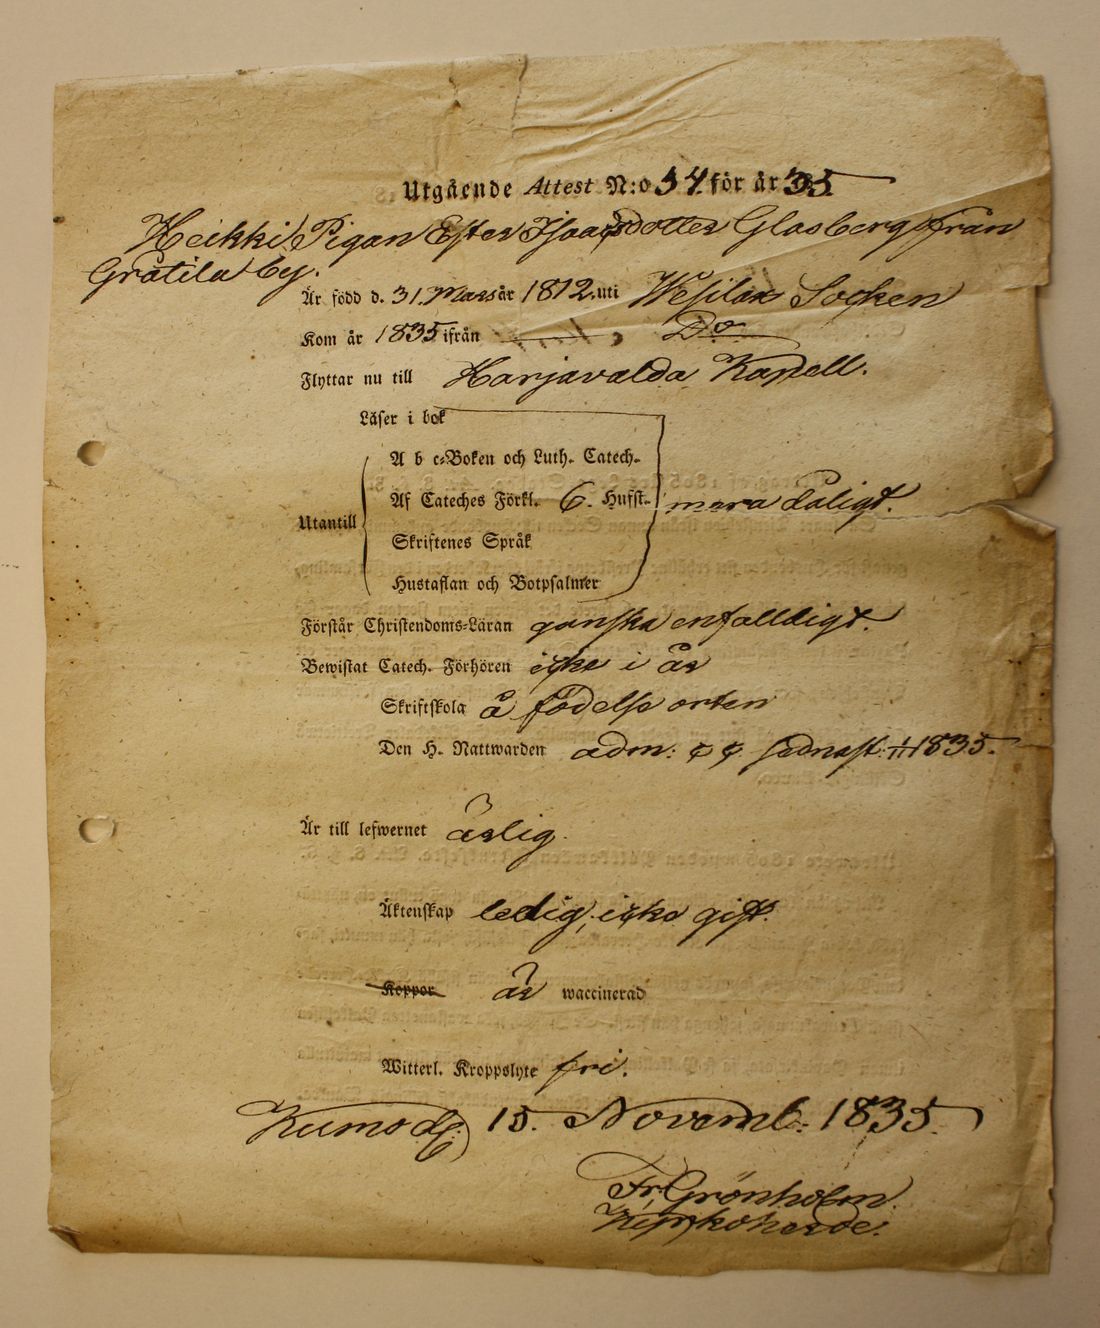 Utgående Attest N:o 54 för år 35.
Heikki/Pigan Ester Isaacsdotter Glasberg från
Gråtila by.
Är född d. 31. Mars år 1812. uti Wesilax Socken
Kom år 1835 ifrån Do
Flyttar nu till Harjavalda Kapell.
Läser i bok
A b c-Boken och Luth. Catech.
Af Cateches Förkl. 6. Hufst. mera dåligt.
Utantill
Skriftenes Språk
Hustaflan och Botpsalmer
Förstår Christendoms-Läran ganska enfalldigt.
Bewistat Catech. Förhören icke i år
Skriftskola å födelse orten
Den H. Nattwarden adm: sednast 1/11 1835.
Är till lefwernet ärlig.
Äktenskap ledig, icke gift.
Koppor är waccinerad
Witterl. Kroppslyte fri.
Kumo d. 15. Novemb. 1835.
Fr. Grönholm.
Kyrkoherde.